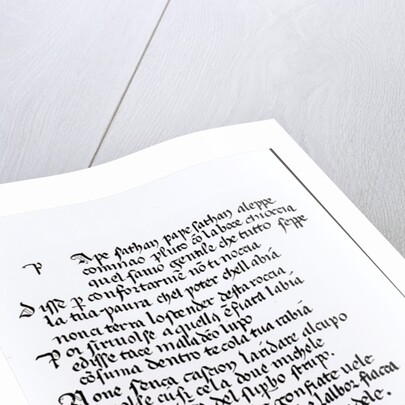 p Ape sathan pape sathan aleppe
cominao pluto cõ la boce chioccia
quel savio gentile che tutto seppe
Disse p confortarme nõ ti noccia
la tua paura chel poter chelli abia
non ci terra lo scender desta roccia
Poi si rivolse a quella efiata labia
e disse tace maladeo lupo
cõsuma dentro te co la tua rabia
None senca cason landare alcupo
volse cusi cela dove michele
del supbo strup.
confiate vele
lalbor fiacca